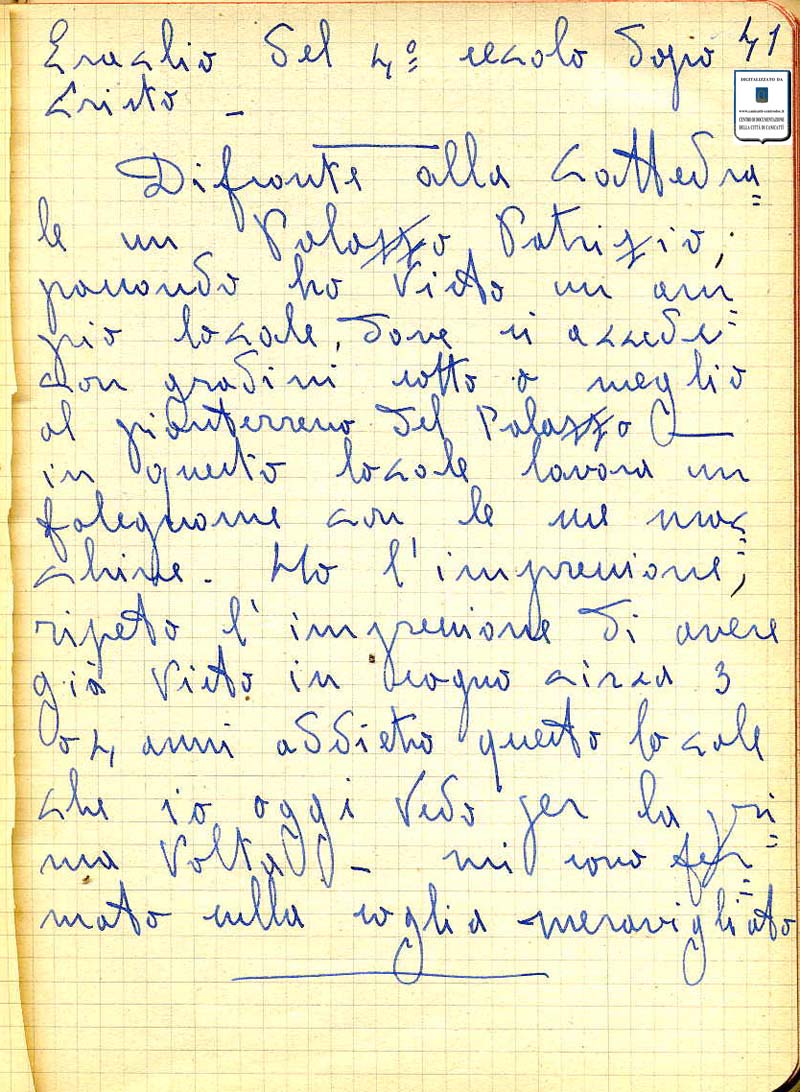 41
Eraclio del 4º secolo dopo
Cristo -
DIGITALIZZATO DA
CENTRO DI DOCUMENTAZIONE
DELLA CITTÀ DI CANICATTÌ
Difronte alla Cattedra=
le un Palazzo Patrizio;
passando ho visto un am=
pio locale, dove si accede
con gradini sotto o meglio
al pianterreno del Palazzo
in questo locale lavora un
falegname con le sue mac=
chine. Ho l'impressione,
ripeto l'impressione di avere
già visto in sogno circa 3
o 4 anni addietro questo locale
che io oggi vedo per la pri=
ma volta!! - mi sono fer=
mato sulla soglia meravigliato